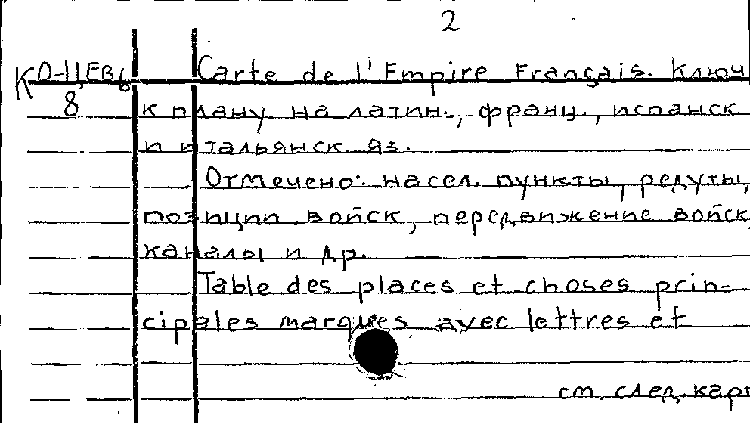 2
К 0-Ц,Евр Carte de l'Empire Français. Ключ
8 к плану на латин., франц., испанск
и итальянск яз.
Отмечено: насел. пункты, редуты,
позиции войск, передвижение войск,
каналы и др.
Table des places et choses prin-
cipales marques avec lettres et
см. след. карт